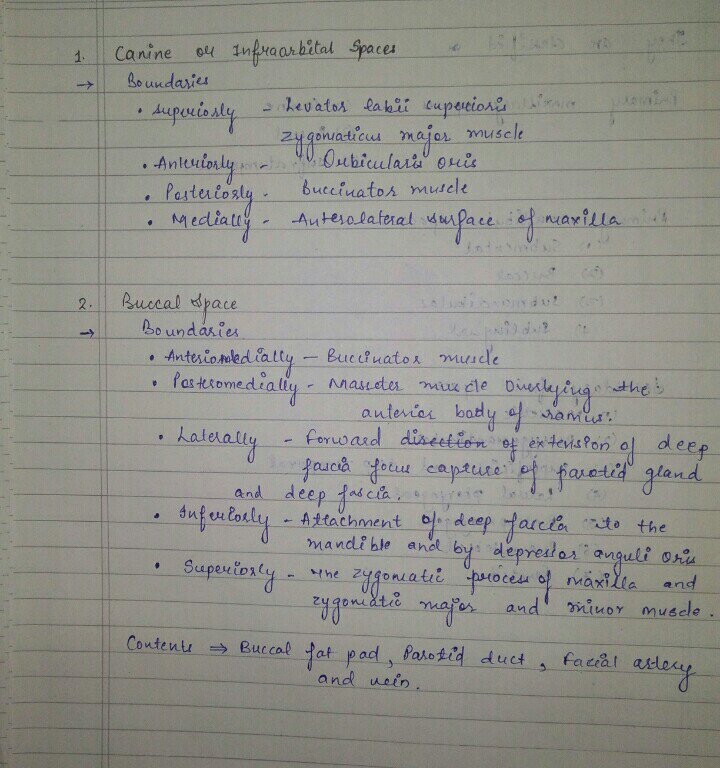 1. Canine or Infraorbital Spaces
→ Boundaries
• Superiorly - Levator labii superioris
zygomaticus major muscle
• Anteriorly - Orbicularis oris
• Posteriorly - Buccinator muscle
• Medially - Anterolateral surface of maxilla
2. Buccal Space
→ Boundaries
• Anteriomedially - Buccinator muscle
• Posteromedially - Masseter muscle Overlying the
anterior body of ramus.
• Laterally - Forward direction of extension of deep
fascia focus capture of parotid gland
and deep fascia.
• Inferiorly - Attachment of deep fascia to the
mandible and by depressor anguli oris
• Superiorly - The zygomatic process of maxilla and
zygomatic major and minor muscle.
Contents ⇒ Buccal fat pad, Parotid duct, facial artery
and vein.